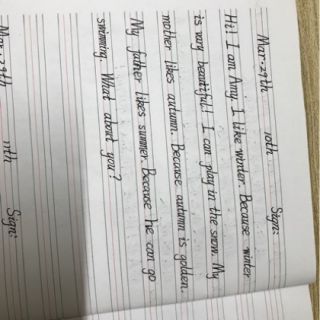 Mar. 29th 10th Sign:
Hi! I am Amy. I like winter. Because winter
is vary beautiful! I can play in the snow. My
mother likes autumn. Because autumn is golden.
My father likes summer. Because he can go
swimming. What about you?
Mar. 29th 11th Sign: